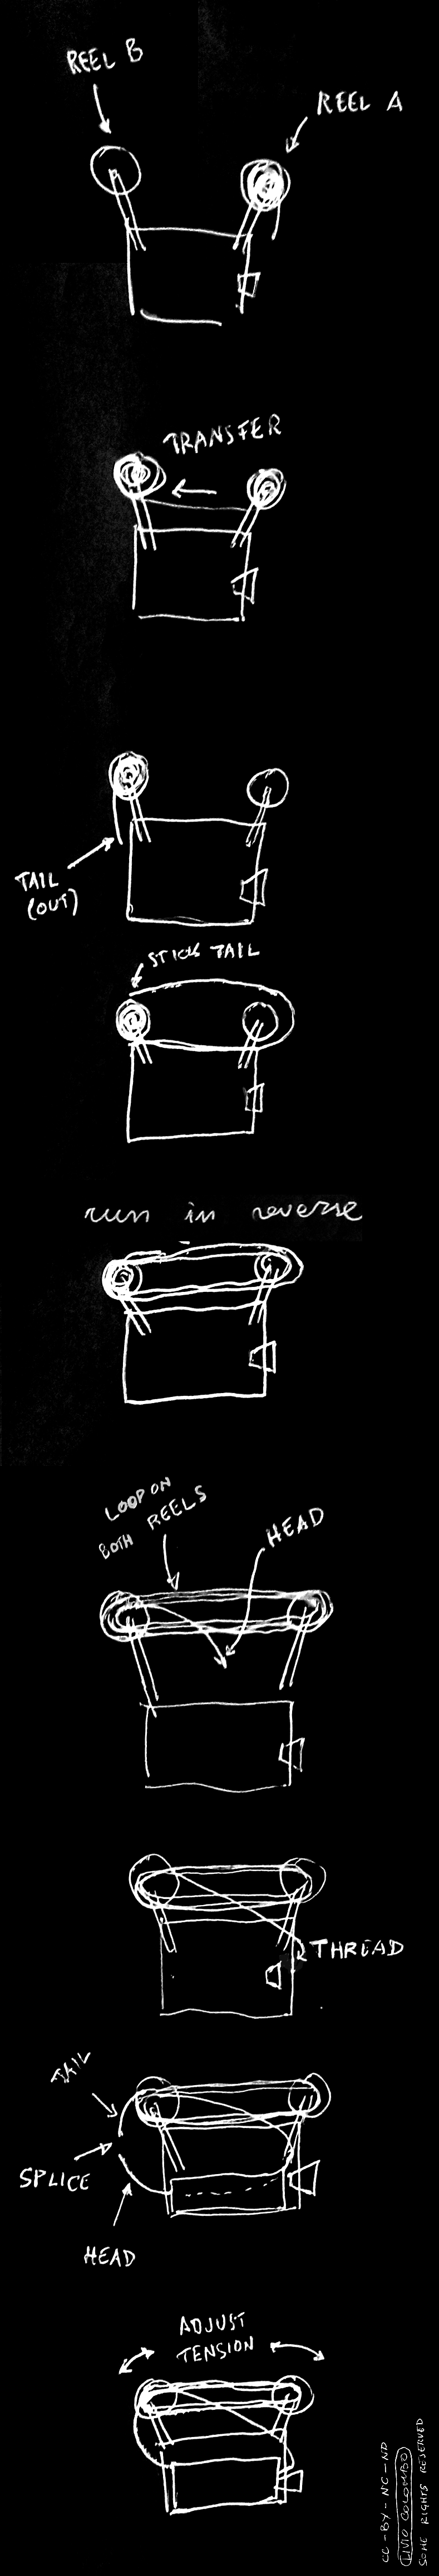 REEL B
REEL A
TRANSFER
TAIL
(OUT)
STICK TAIL
run in reverse
LOOP ON
BOTH REELS
HEAD
THREAD
TAIL
SPLICE
HEAD
ADJUST
TENSION
CC-BY-NC-ND
LIVIO COLOMBO
SOME RIGHTS RESERVED